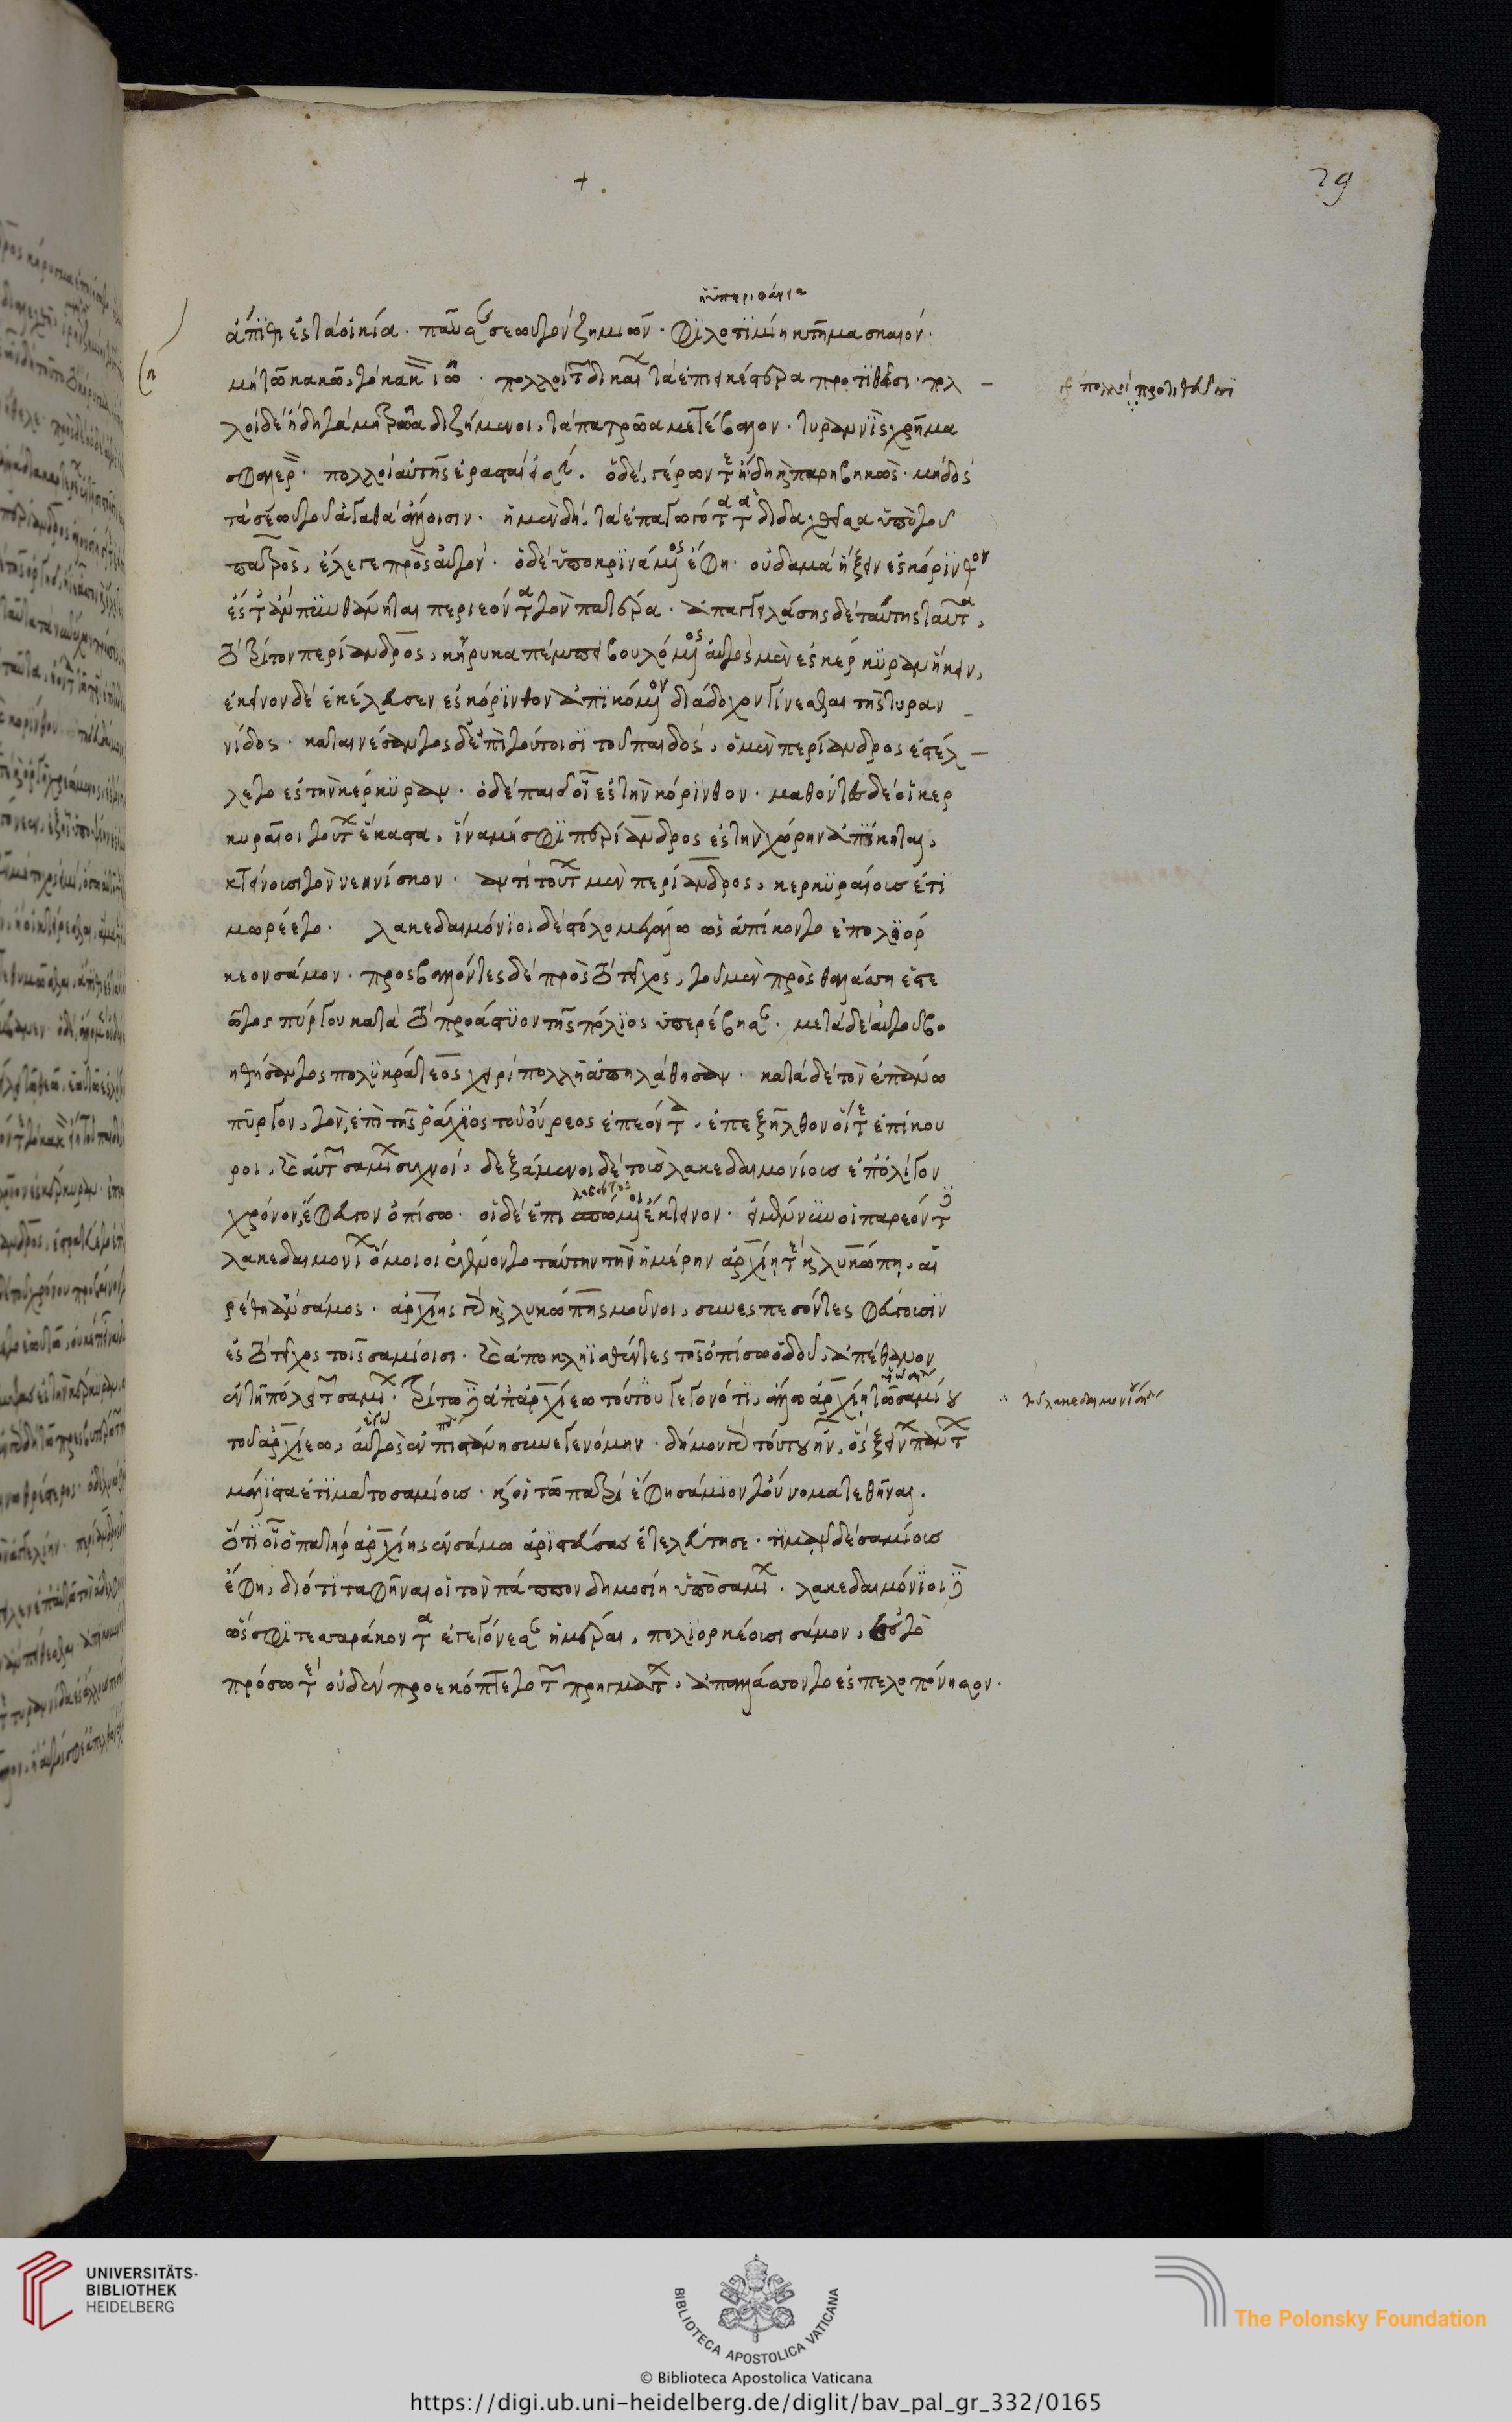 +
29
ἡ ὑπερηφάνεια
ἄπιθι ἐς τὰ οἰκία. παῦσαι σεωυτὸν ζημιῶν. φιλοτιμίη κτῆμα σκαιόν.
μὴ τῶ κακῶ τὸ κακὸν ἰῶ. πολλοὶ τῶν δικαίων τὰ ἐπιεικέστερα προτιθεῖσι. πολ
λοὶ δὲ ἤδη τὰ μητρῶα διζήμενοι, τὰ πατρῶα μετέβαλον. τυραννὶς χρῆμα
σφαλερόν. πολλοὶ αὐτῆς ἐρασταί εἰσι. ὁ δὲ, γέρων τε ἤδη καὶ παρηβηκὼς. μὴ δὸς
τὰ σεωυτοῦ ἀγαθὰ ἄλλοισιν. ἡ μὲν δὴ τὰ ἐπαγωγότατα διδαχθεῖσα ὑπὸ τοῦ
πατρὸς, ἔλεγε πρὸς αὐτόν. ὁ δὲ ὑποκρινάμενος ἔφη. οὐδαμὰ ἥξειν ἐς κόρινθον
ἔς τ' ἂν πυνθάνηται περιεόντα τὸν πατέρα. ἀπαγγειλάσης δὲ ταύτης ταῦτα,
τὸ τρίτον περίανδρος, κήρυκα πέμπει βουλόμενος αὐτὸς μὲν ἐς κέρκυραν ἥκειν,
ἐκεῖνον δὲ ἐκέλευσεν ἐς κόρινθον ἀπικόμενον διάδοχον γίνεσθαι τῆς τυραν
νίδος. καταινέσαντος δὲ ἐπὶ τούτοισι τοῦ παιδὸς, ὁ μὲν περίανδρος ἐστέλ
λετο ἐς τὴν κέρκυραν. ὁ δὲ παῖς οἱ ἐς τὴν κόρινθον. μαθόντες δὲ οἱ κερ
κυραῖοι τούτων ἕκαστα, ἵνα μή σφι περίανδρος ἐς τὴν χώρην ἀπίκηται,
κτείνουσι τὸν νεηνίσκον. ἀντὶ τούτων μὲν περίανδρος, κερκυραίοισ ἐτι
μωρέετο. λακεδαιμόνιοι δὲ στόλω μεγάλω ὡς ἀπίκοντο ἐπολιόρ
κεον σάμον. προσβαλόντες δὲ πρὸς τὸ τεῖχος, τοῦ μὲν πρὸς θαλάσση ἑστε
ῶτος πύργου κατὰ τὸ προάστιον τῆς πόλιος ὑπερέβησαν. μετὰ δὲ αὐτοῦ βο
ηθήσαντος πολυκράτεος χειρὶ πολλῆ ἀπηλάθησαν. κατὰ δὲ τὸν ἐπάνω
πύργον, τὸν ἐπὶ τῆς ῥάχιος τοῦ οὔρεος ἐπεόντα, ἐπεξῆλθον οἵ τε ἐπίκου
ροι, καὶ αὐτῶν σαμίων συχνοί, δεξάμενοι δὲ τοὺς λακεδαιμονίους ἐπ' ὀλίγον
χρόνον, ἔφευγον ὀπίσω. οἱ δὲ ἐπισπόμενοι ἔκτεινον. εἰ μέν νυν οἱ παρεόντες
λακεδαιμονίων ὅμοιοι ἐγένοντο ταύτην τὴν ἡμέρην ἀρχίη τε καὶ λυκώπη, αἱ
ρέθη ἂν σάμος. ἀρχίης γὰρ καὶ λυκώπης μοῦνοι, συνεσπεσόντες φεύγουσιν
ἐς τὸ τεῖχος τοῖς σαμίοισι. καὶ ἀποκληισθέντες τῆς ὀπίσω ὁδοῦ, ἀπέθανον
ἐν τῆ πόλει τῶν σαμίων. τρίτω δὲ ἀπ' ἀρχίεω τούτου γεγονότι, ἄλλω ἀρχίη τῶ σαμίου
τοῦ ἀρχίεω, αὐτὸς ἐν πιτάνη συνεγενόμην. δήμου γὰρ τούτου ἦν, ὃς ξείνων πάντων
μάλιστα ἐτίμα τοσαμίοισ. καί οἱ τῶ πατρὶ ἔφη σάμιον τοὔνομα τεθῆναι.
ὅτι οἱ ὁ πατὴρ ἀρχίης ἐν σάμω ἀριστεύσας ἐτελεύτησε. τιμᾶν δὲ σαμίουσ
ἔφη, διότι ταφῆναι οἱ τὸν πάππον δημοσίη ὑπὸ σαμίων. λακεδαιμόνιοι δὲ
ὥς σφι τεσσαράκοντα ἐγεγόνεσαν ἡμέραι, πολιορκέουσι σάμον, ἐς τὸ
πρόσω τε οὐδὲν προεκόπτετο τῶν πρηγμάτων, ἀπαλλάσσοντο ἐς πελοπόννησον.
πολλοὶ προτιθεῖσι